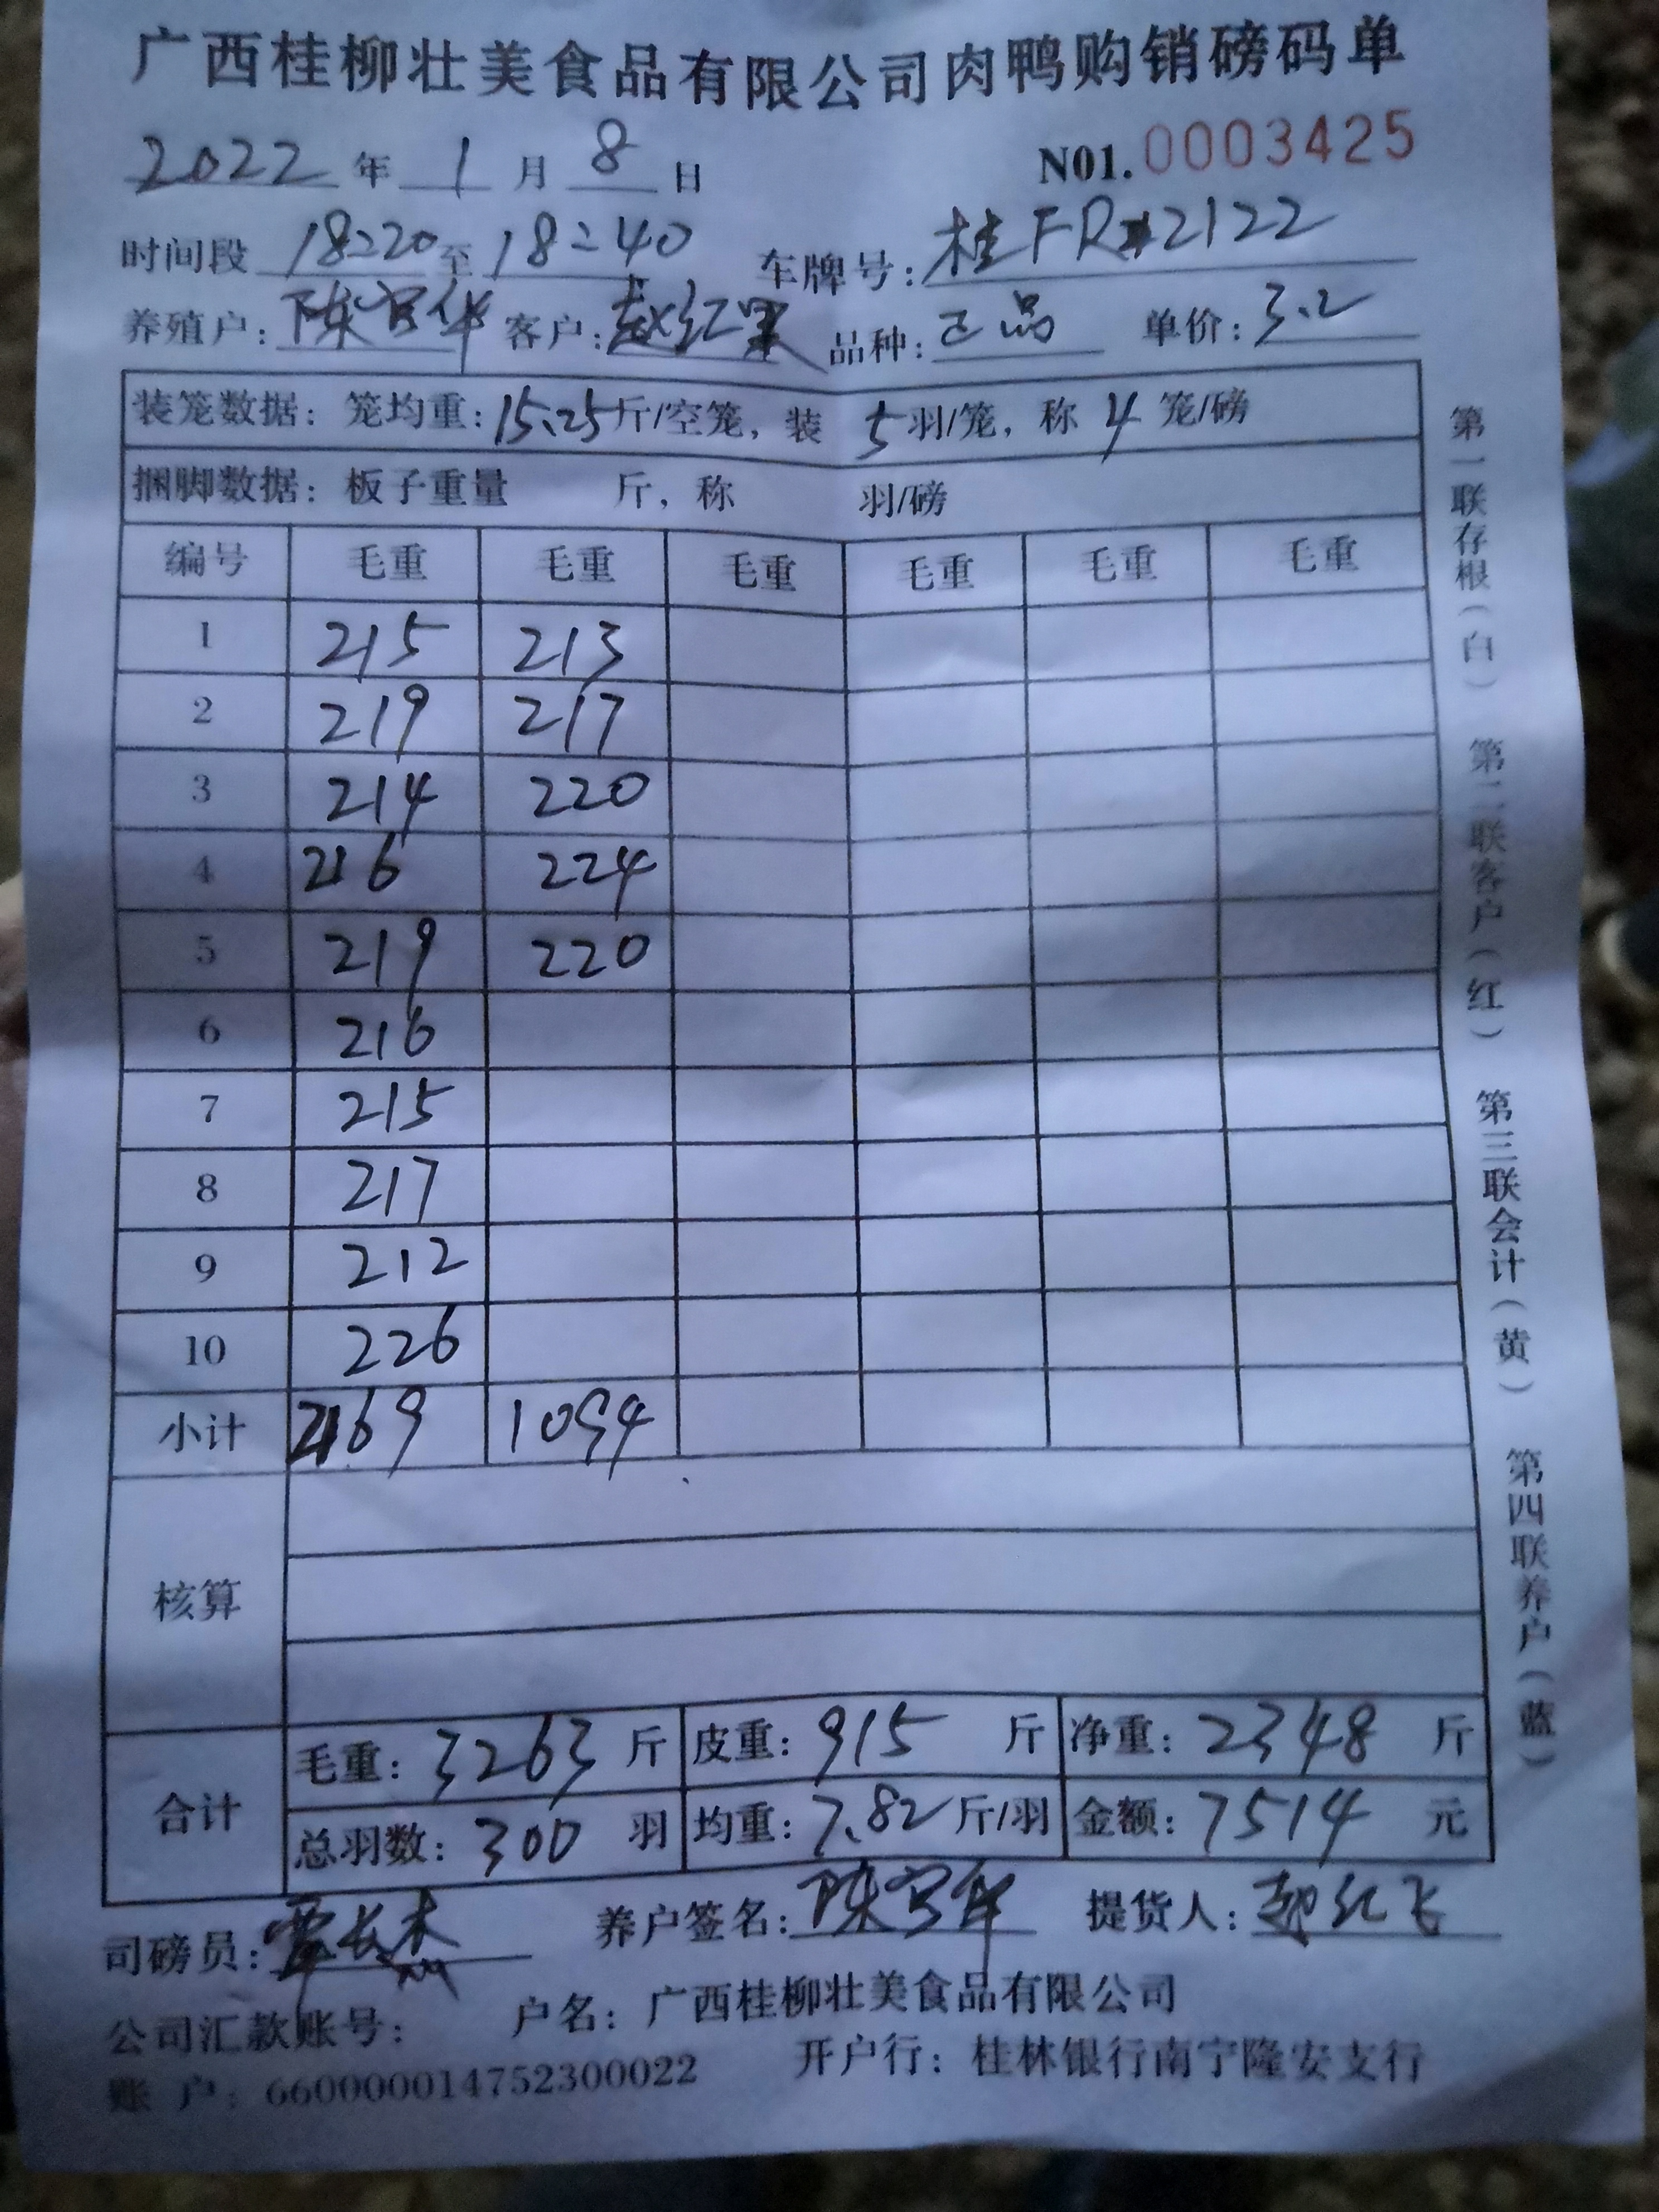 广西桂柳壮美食品有限公司肉鸭购销磅码单
2022 年 1 月 8 日 N01. 0003425
时间段 18:20 至 18:40 车牌号: 桂FR2122
养殖户: 陈 华 客户: 赵红 品种: 正品 单价: 3.2
装笼数据: 笼均重: 15.25 斤/空笼, 装 5 羽/笼, 称 4 笼/磅
捆脚数据: 板子重量 斤, 称 羽/磅
编号 毛重 毛重 毛重 毛重 毛重 毛重
1 215 213
2 219 217
3 214 220
4 216 224
5 219 220
6 216
7 215
8 217
9 212
10 226
小计 2169 1094
核算
合计
毛重: 3263 斤 皮重: 915 斤 净重: 2348 斤
总羽数: 300 羽 均重: 7.82 斤/羽 金额: 7514 元
司磅员: 覃长 养户签名: 陈 华 提货人: 赵红飞
公司汇款账号: 户名: 广西桂柳壮美食品有限公司
账 户: 660000014752300022 开户行: 桂林银行南宁隆安支行
第一联存根(白) 第二联客户(红) 第三联会计(黄) 第四联养户(蓝)